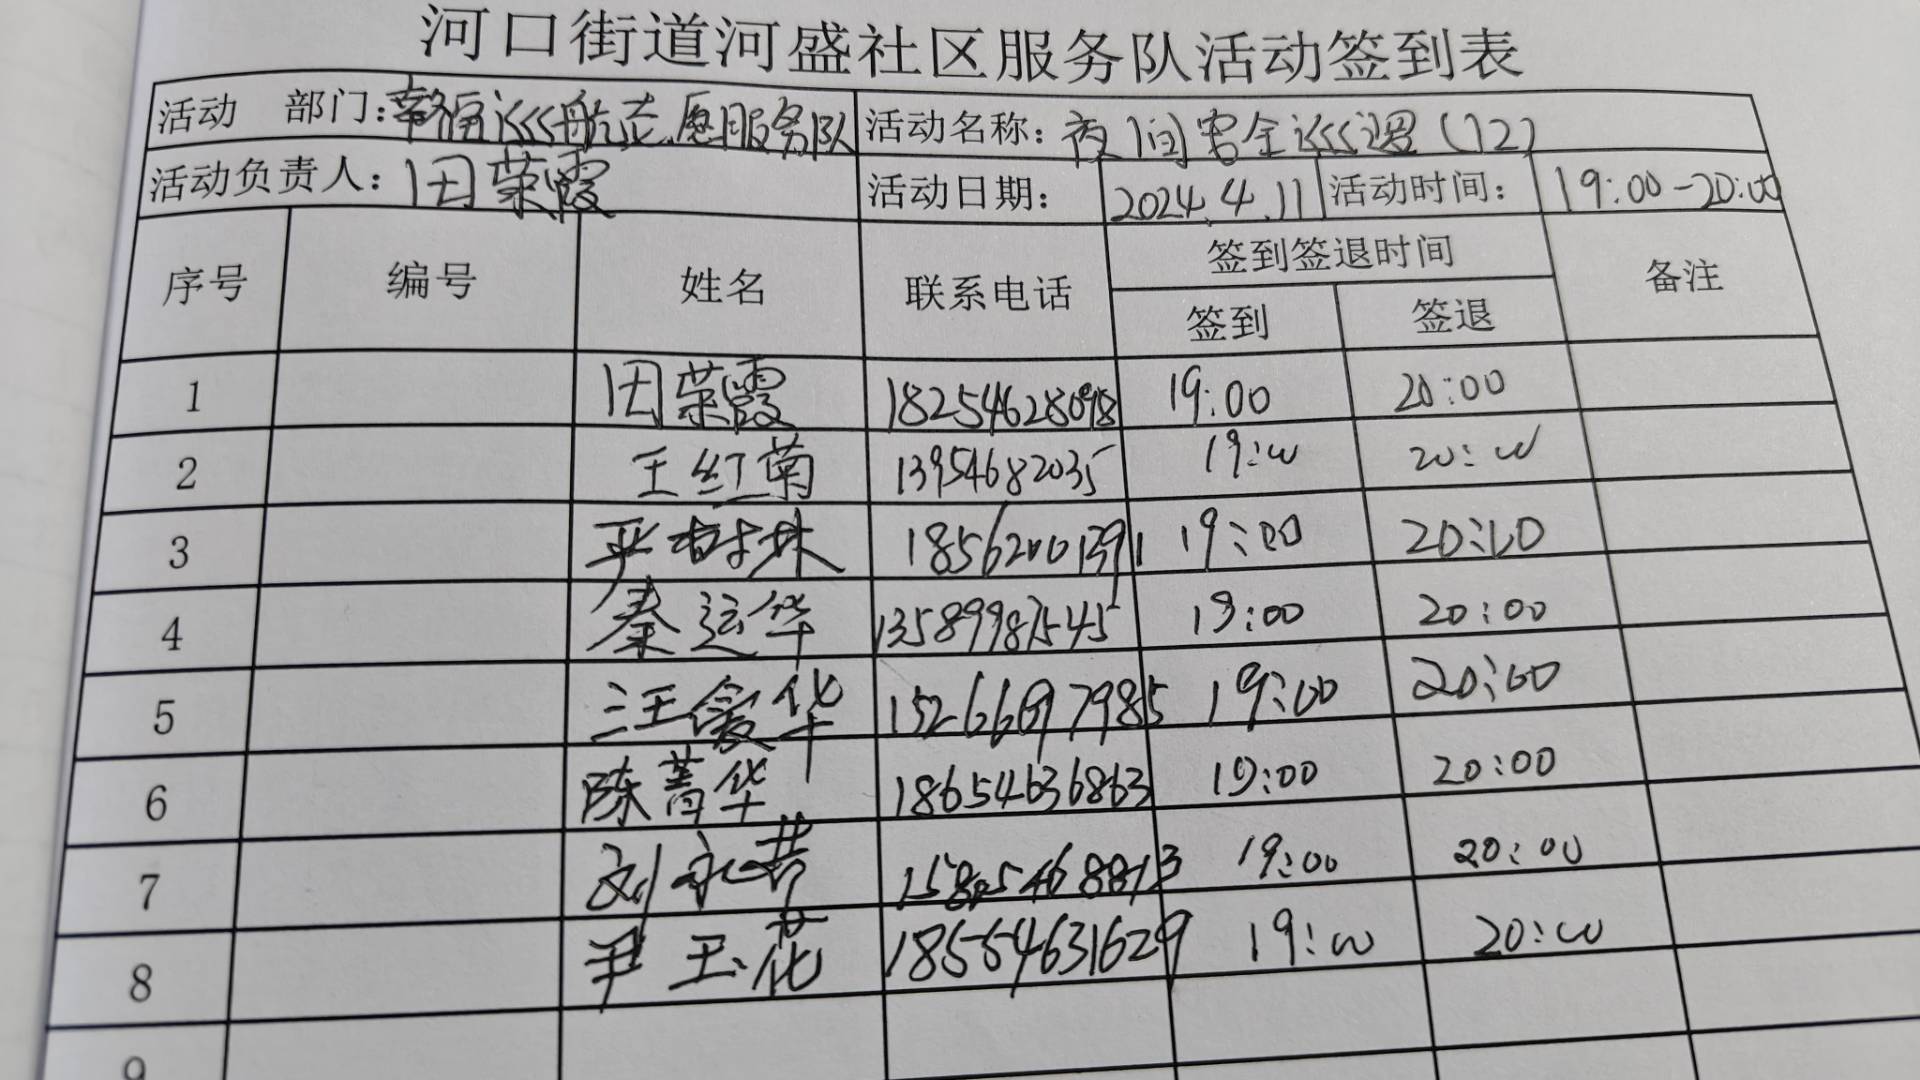 河口街道河盛社区服务队活动签到表
活动 部门：幸福巡航志愿服务队 活动名称：夜间安全巡逻（12）
活动负责人：田荣霞 活动日期： 2024.4.11 活动时间： 19:00-20:00
序号 编号 姓名 联系电话 签到签退时间 备注
签到 签退
1 田荣霞 18254628098 19:00 20:00
2 王红菊 13954682035 19:00 20:00
3 严树林 18562001391 19:00 20:00
4 秦运华 13589987545 19:00 20:00
5 汪爱华 15266697985 19:00 20:00
6 陈菁华 18654636863 19:00 20:00
7 刘永芳 15805468813 19:00 20:00
8 尹玉花 18554631629 19:00 20:00
9